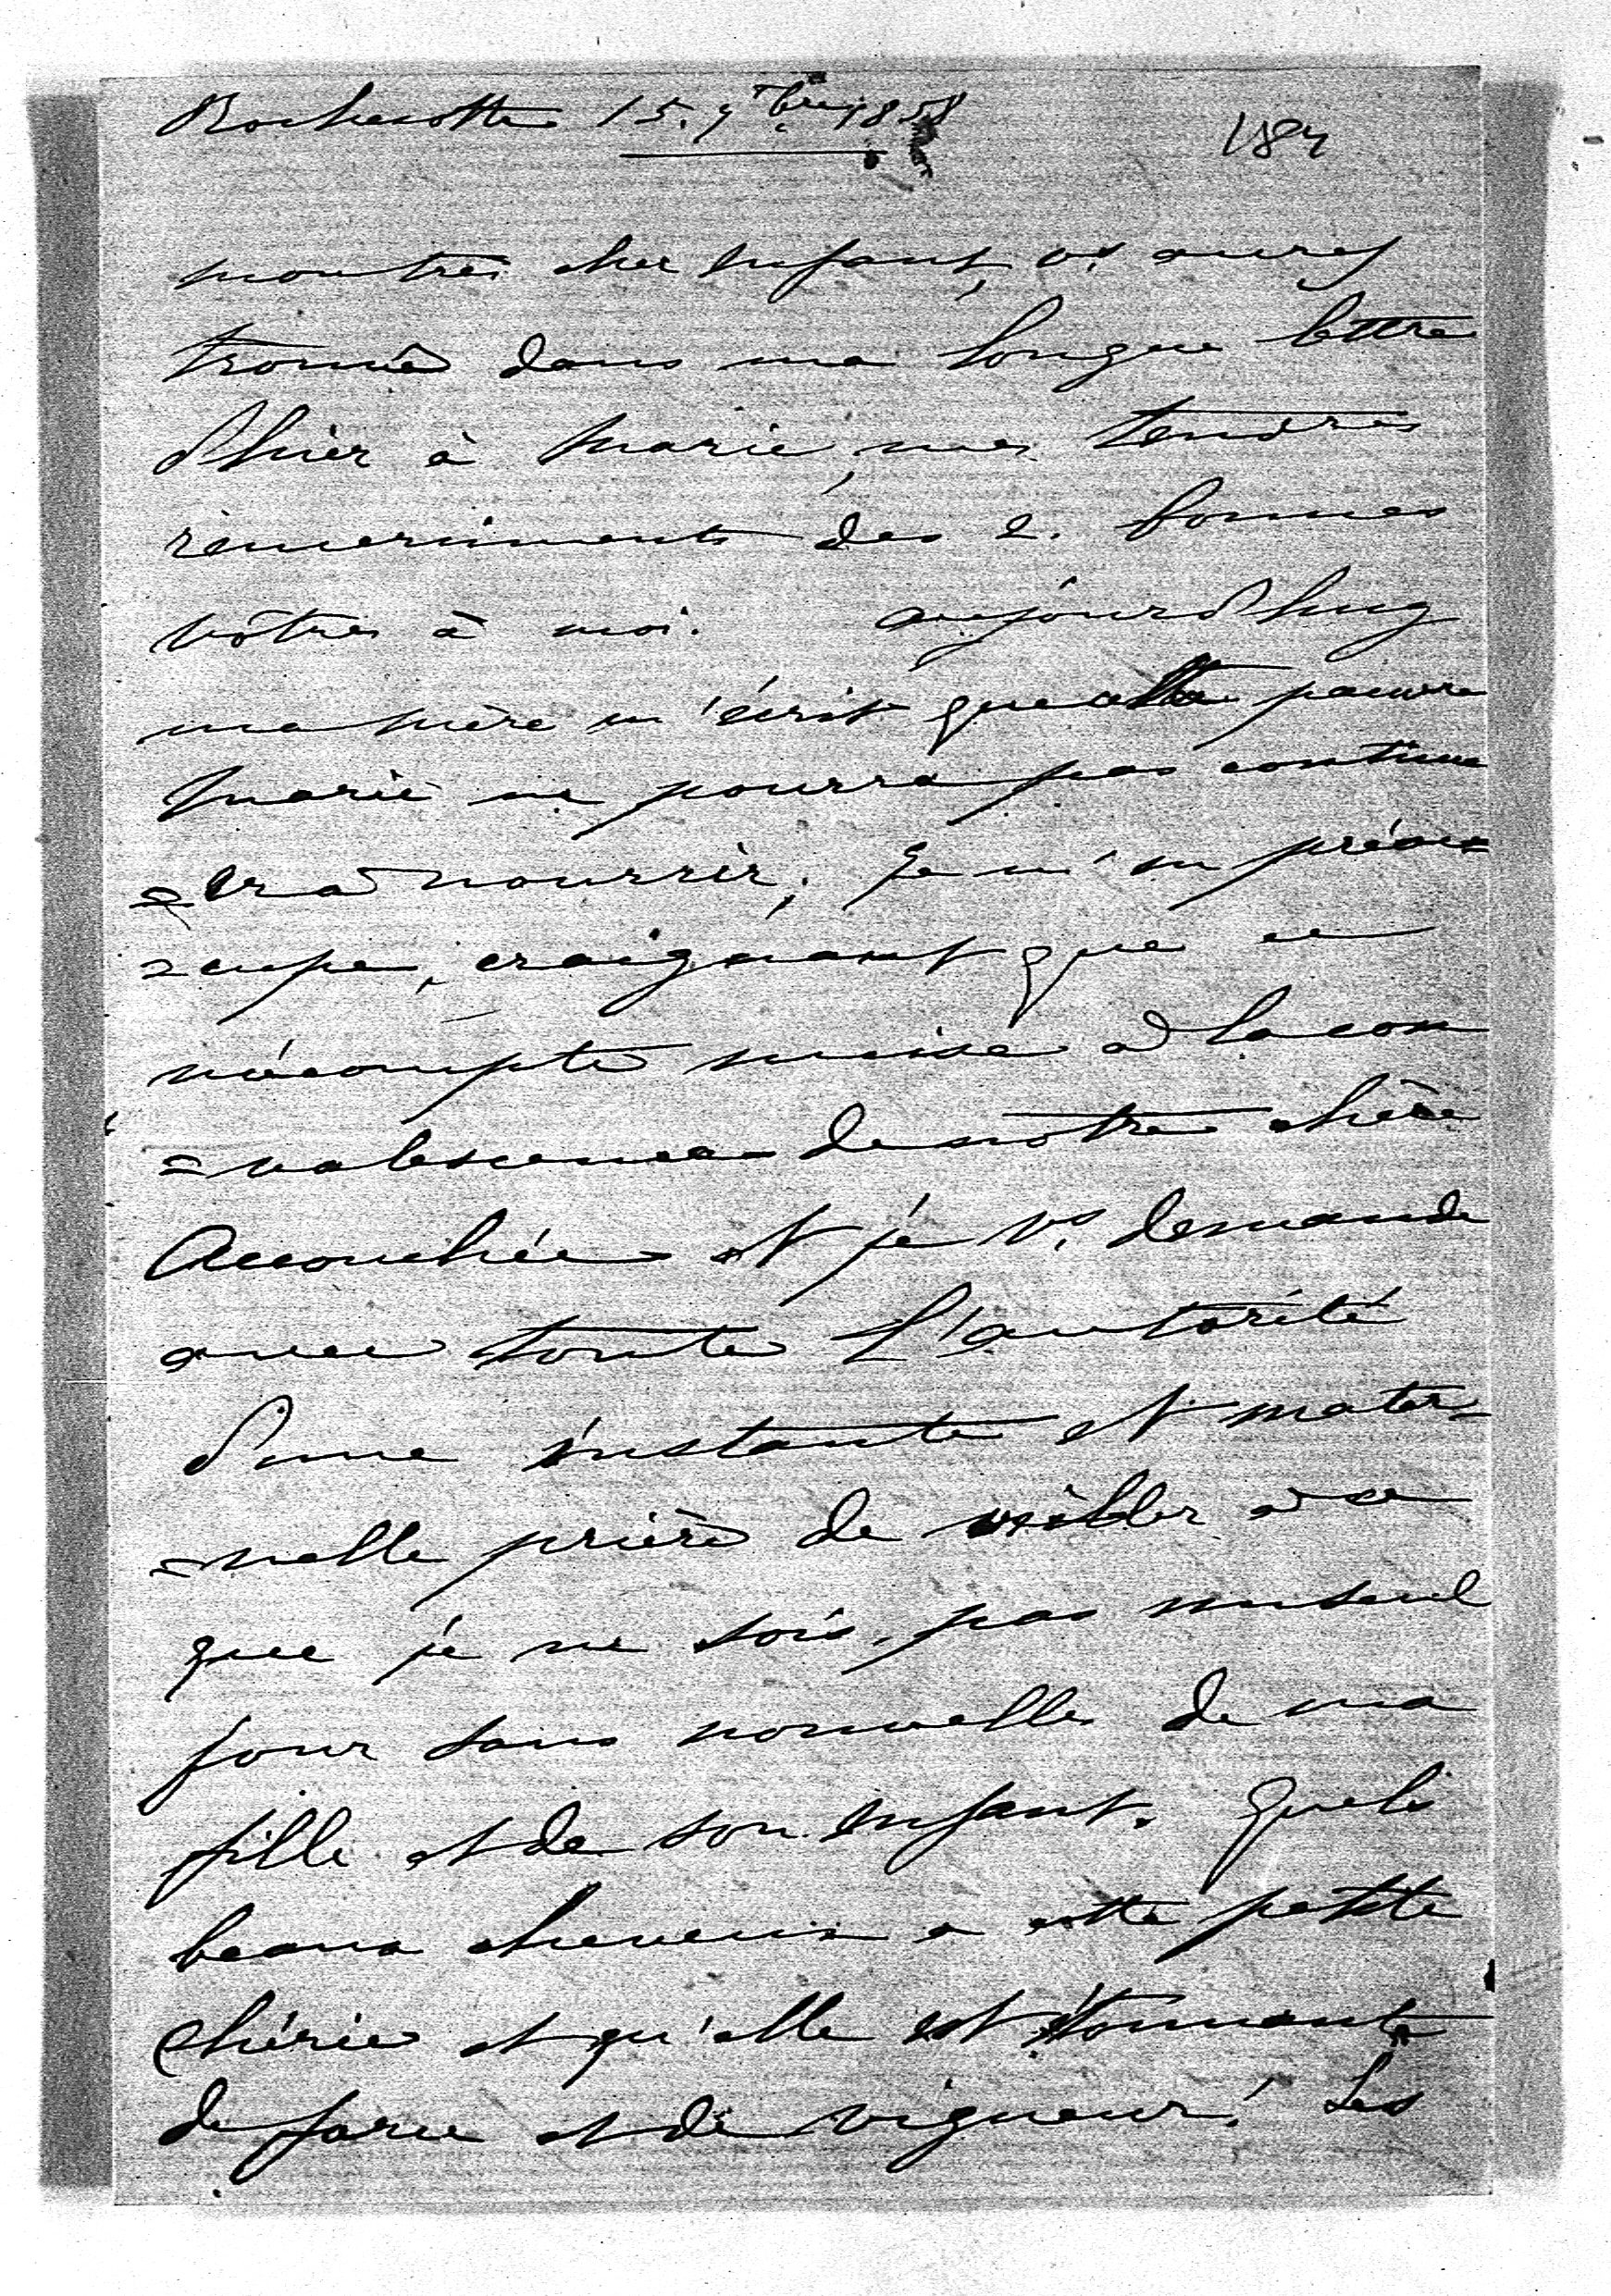 Rochecotte 15. 9bre 1858
184
mon très cher Enfant, vs aurez
trouvé dans ma longue lettre
d'hier à Marie, mes tendres
remerciments des 2. bonnes
vôtres à moi. aujourd'huy
ma mère m'écrit que cette pauvre
Marie ne pourra pas continue
=er à nourrir; je m'en préoc=
=cupe, craignant que ce
mécompte nuise à la con
=valescence de notre chère
Accouchée et je vs demande
avec toute l'autorité
d'une instante et mater=
=nelle prière de veiller à ce
que je ne sois pas un seul
jour sans nouvelles de ma
fille et de son enfant. Quels
beaux cheveux a cette petite
chérie et qu'elle est étonnante
de force et de vigueur! Les